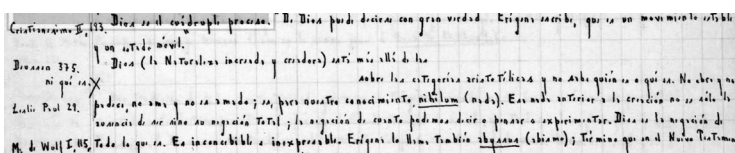 Cristianismo II, 193. Dios es el cuádruple proceso. De Dios puede decirse con gran verdad. Erígena escribe, que es un movimiento estable
y un estado móvil.
Deussen 375. Dios (la Naturaleza increada y creadora) está más allá de las
ni qué es. X sobre las categorías aristotélicas y no sabe quién es o qué es. No obra y no
Leslie Paul 29. padece, no ama y no es amado; es, para nuestro conocimiento nihilum (nada). Esa nada anterior a la creación no es sólo la
ausencia de ser sino su negación total; la negación de cuanto podemos decir o pensar o experimentar. Dios es la negación de
M. de Wulf I, 115. Todo lo que es. Es inconcebible e inexpresable. Erígena lo llama también abyssus (abismo); término que en el Nuevo Testamento